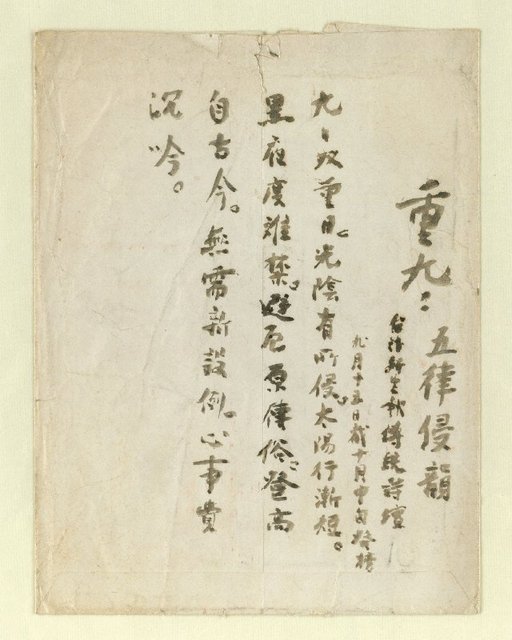 重九：五律侵韻
台灣新生報傳統詩壇
九月十五日截十月中旬發榜
九、双重日。光陰有所侵。太陽行漸短。
黑夜度難禁。避厄原傳俗。登高
自古今。無需新設例。心事費
沉吟。